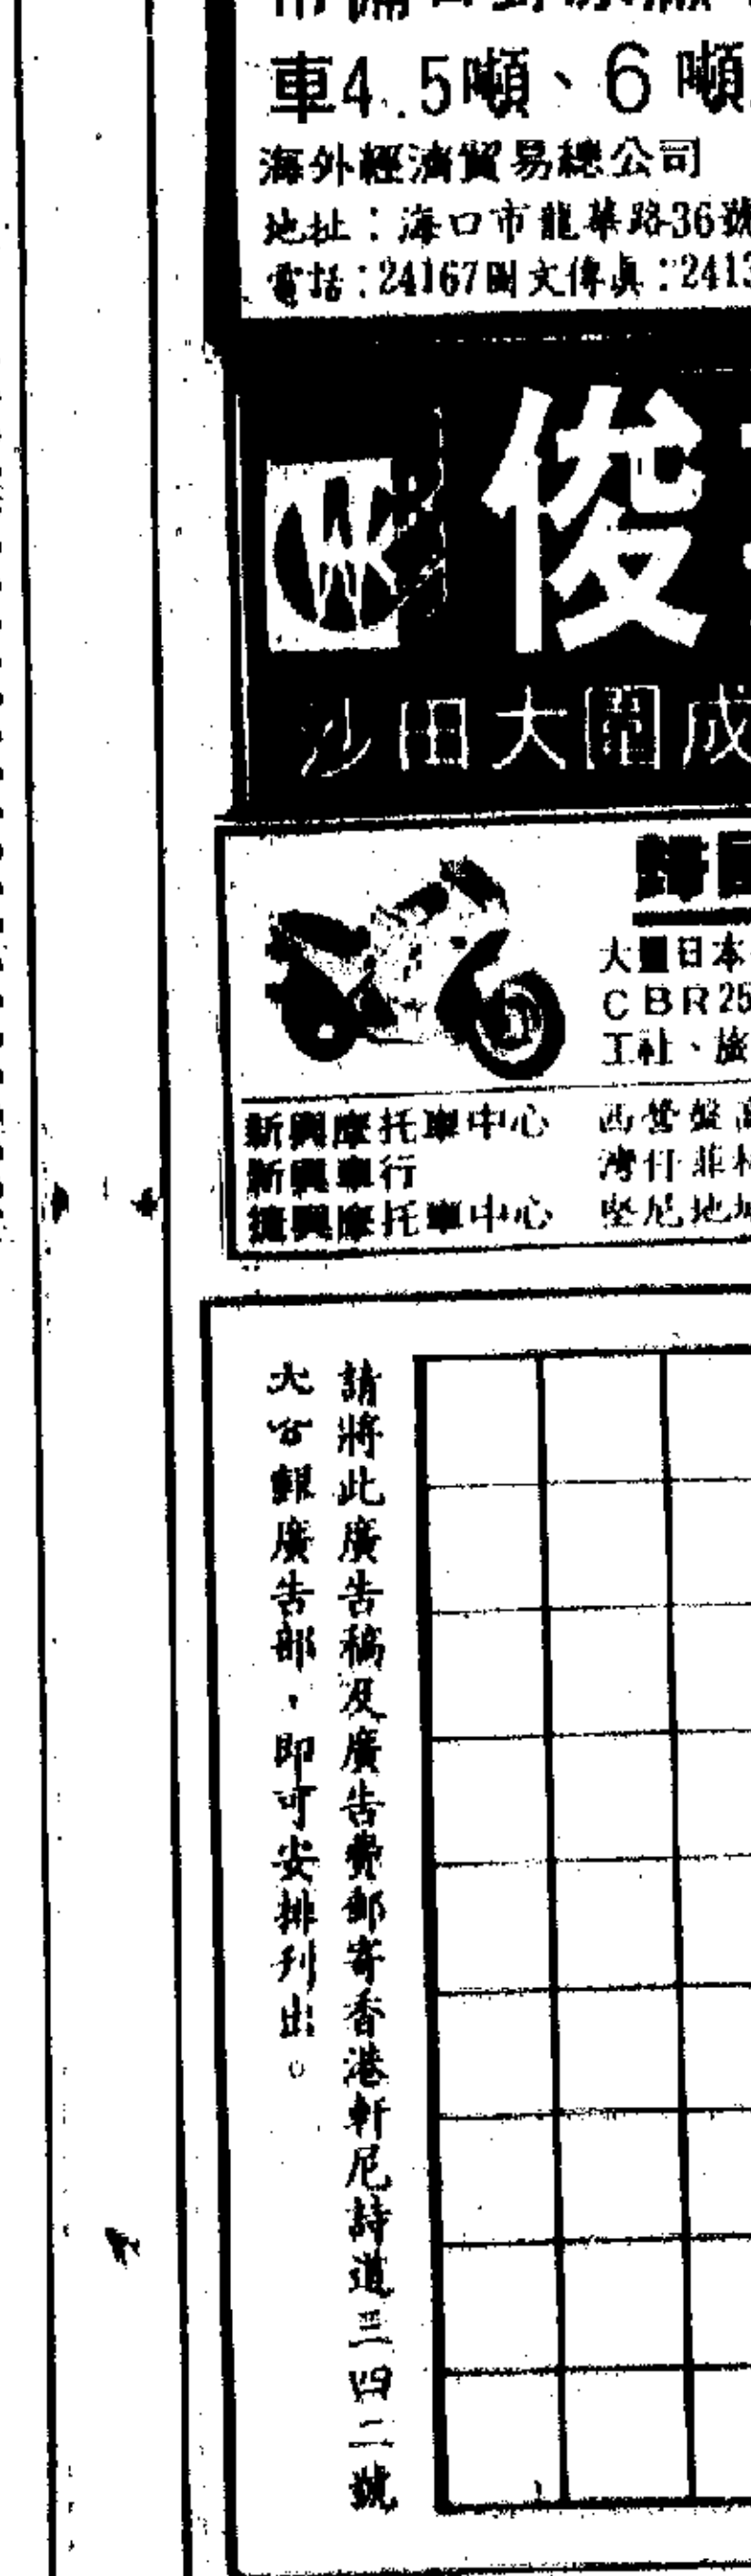 車4.5噸、6噸
海外經濟貿易總公司
地扯：海口市龍華路36號
電話：24167圖文傳真：2413
俊
沙田大圍成
大量日本
CBR25
工社、旅
新興摩托車中心 西營盤高
新興車行 灣仔菲林
捷興摩托車中心 堅尼地城
請將此廣告稿及廣告費郵寄香港軒尼詩道三四二號
大公報廣告部，即可安排刋出。